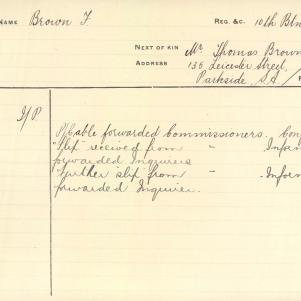 NAME Brown F. REG. &C. 10th Btn
NEXT OF KIN Mr Thomas Brown
ADDRESS 136, Leicester Street,
Parkside S.A.
I/P
P/Cable forwarded Commissioners. Con
"Slip" received from " Infor
forwarded Inquirers
Further slip from " Infor
forwarded Inquirer.